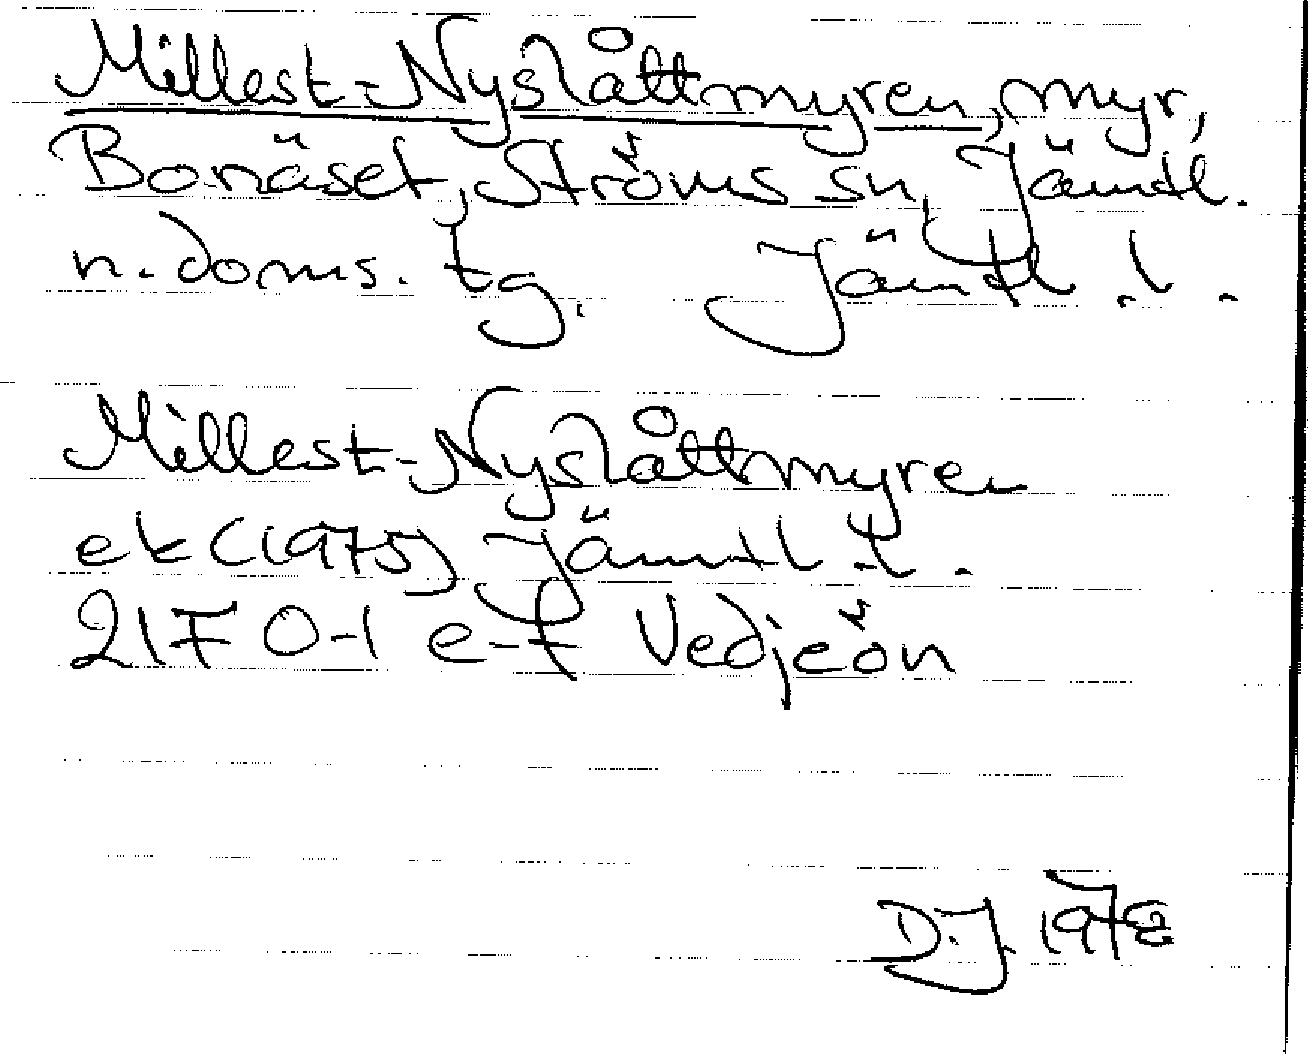 Millest-Nyslåttmyren, myr,
Bonäset, Ströms sn, Jämtl.
n. doms. tg. Jämtl. l.
Millest-Nyslåttmyren
ek (1975) Jämtl. l.
217 0-1 e-f Vedjeön
D.J. 1978